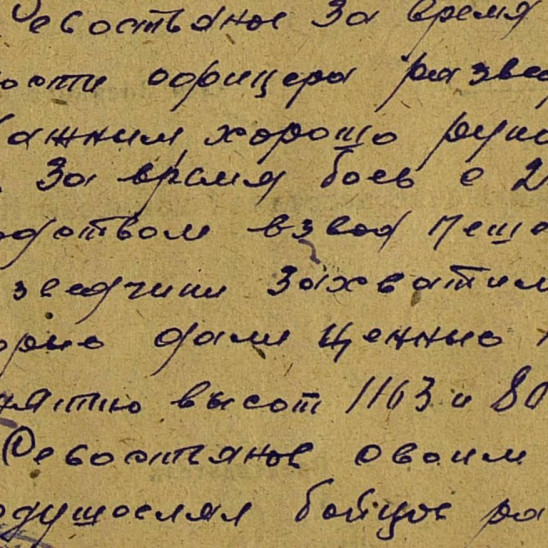 Севостьянов За время
ости офицера развед
важним хорошо руко
За время боев с 2
одством взвод пеше
зведчики Захватим
орые дали ценные
нятию высот 1163 и 80
Севостьянов своим
одушевлял бойцов ра